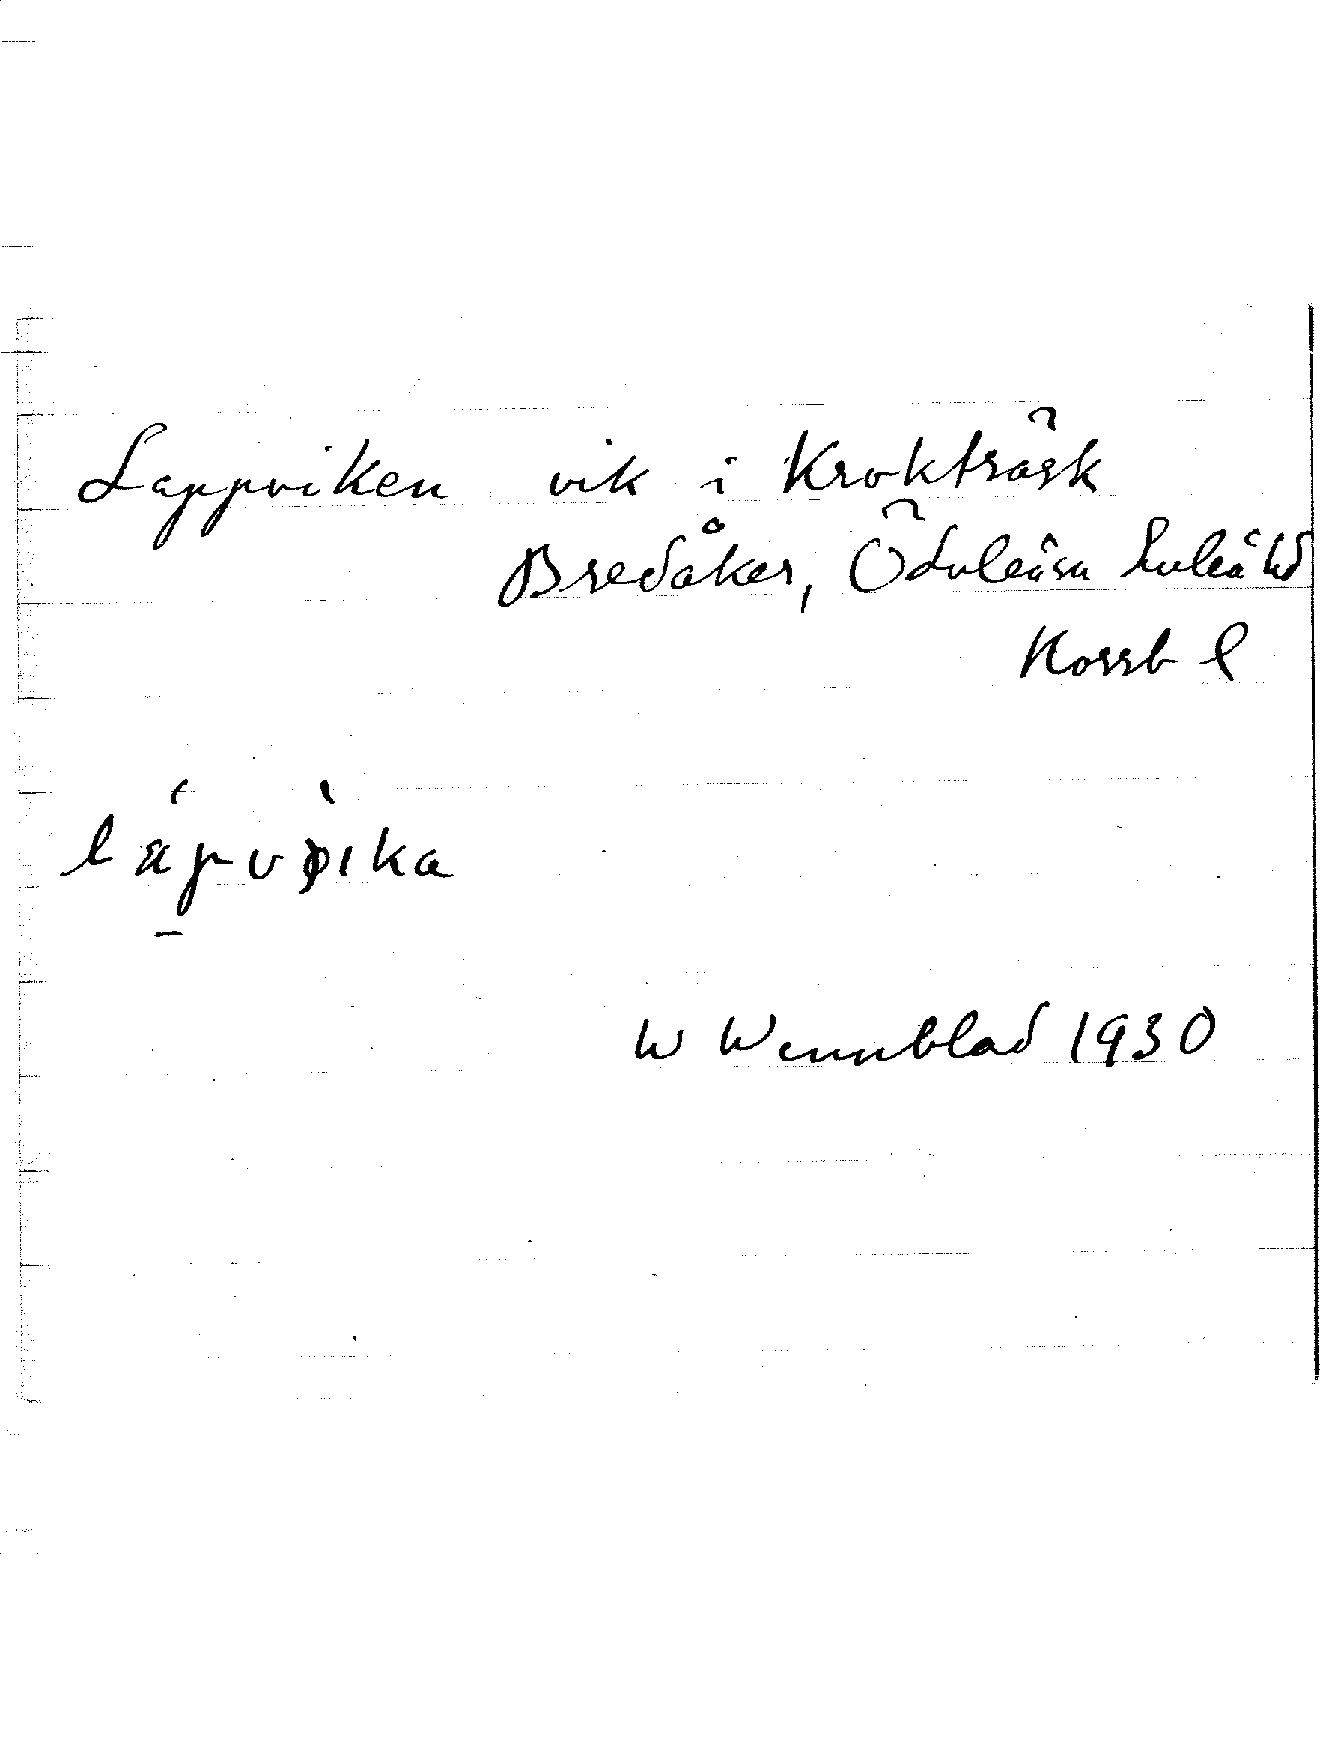 Lappviken vik i Krokträsk
Bredåker, Öduleåsn Luleå hd
Norrb l
W Wennblad 1930